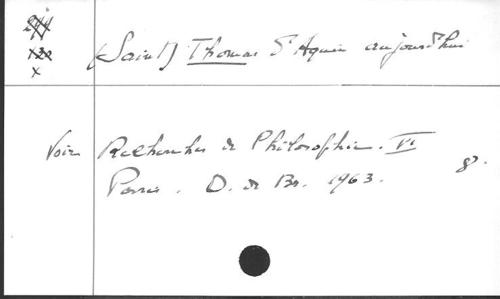 (Saint) Thomas d'Aquin aujourd'hui
Voir Recherches de Philosophie. VI
Paris. D. de Br. 1963. 8°